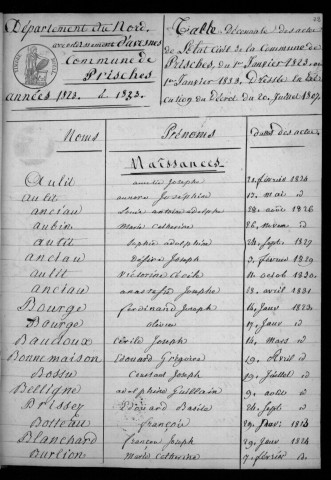 Département du Nord.
arrondissement d'avesnes
Commune de
Prisches
années 1823. à 1833.
Table Décennale des actes
de l'Etat Civil de la Commune de
Prisches, du 1er Janvier 1823. au
1er Janvier 1833. Dressée en Exé-
cution du Décret du 20 Juillet 1807.
Noms Prénoms Dates des actes
Naissances
Aulit amelie Josephe 21. février 1824
Aulit Joséphine 17. mai id
anciau Louis antoine adolphe 28. août 1826
aubin Marie Catherine 26. Novem id
aulit Sophie adolphine 24. Sept. 1827
anciau Désiré Joseph 3. février 1829
aulit Victorine 11. octob 1830.
anciau anastasie Josephe 18. avril 1831
Bourge ferdinand Joseph 14. Janv. 1823.
Bourge olivier 17. Janv. id
Baudoux Cécile Joseph 14. Mars id
Bonnemaison Edouard Grégoire 19. avril id
Bossu Constant Joseph 19. Juillet id
Belligne adolphine Guillain 9. août id
Brissez Edouard Basile 24. Sept. id
Botteau françois 29. Janv. 1824
Blanchard françois Joseph 29. Janv 1824
Burlion Marie Catherine 7. février id